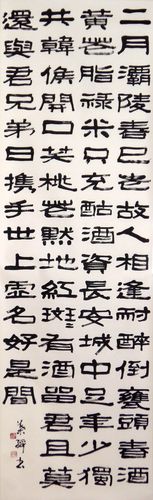 二月灞陵春已老故人相逢耐醉倒甕頭春酒
黄花脂禄米只充酤酒資長安城中足年少獨
共韓侯開口笑桃花點地紅斑=有酒留君且莫
還與君兄弟日携手世上虚名好是閒